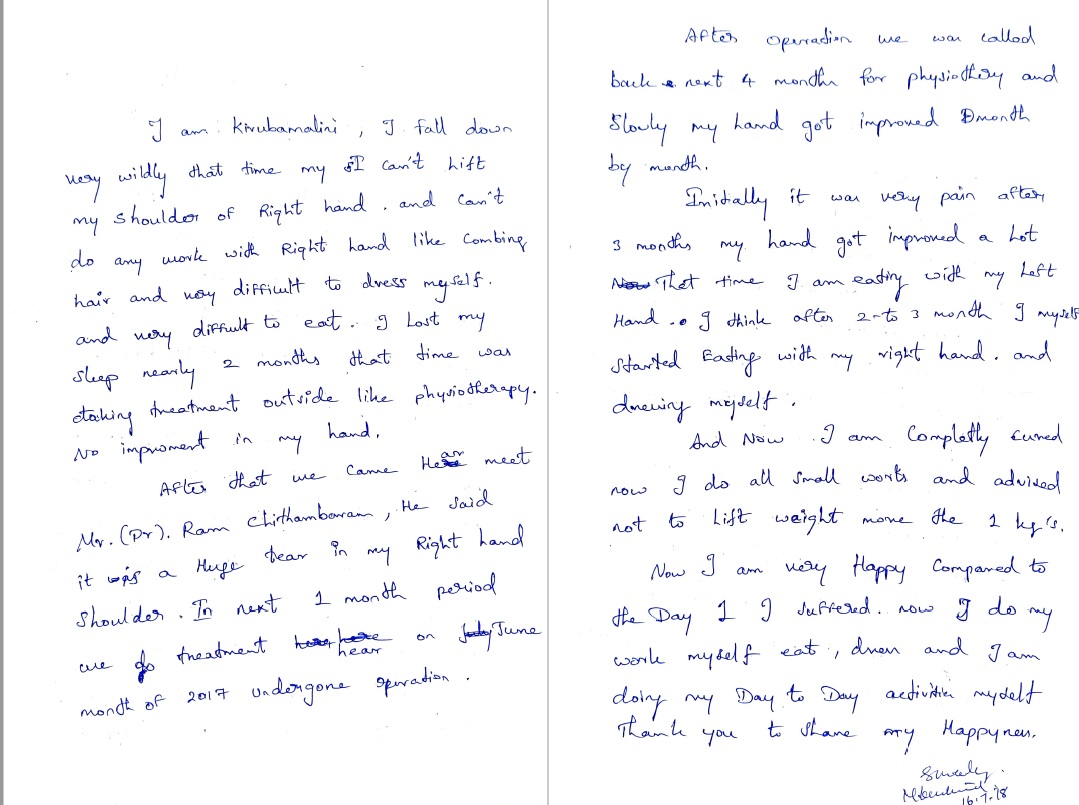 I am Kirubamalini, I fall down
very wildly that time my I can't Lift
my shoulder of Right hand. and can't
do any work with Right hand like Combing
hair and very difficult to dress myself.
and very diffcult to eat. I Lost my
sleep nearly 2 months that time was
taking treatment outside like physiotherapy.
No improment in my hand.
After that we came an meet
Mr. (Dr). Ram Chithambaram, He said
it was a Huge tear in my Right hand
Shoulder. In next 1 month period
we do treatment hear on June
month of 2017 undergone operation.
After operation we was called
back next 4 month for physiothery and
Slowly my hand got improved month
by month.
Initially it was very pain after
3 months my hand got improved a Lot
That time I am eating with my Left
Hand.. I think after 2-to 3 month I myself
Started Eating with my right hand. and
dressing myself.
And Now I am Completly cured
now I do all small works and advised
not to Lift weight more the 1 kg's.
Now I am very Happy Compared to
the Day 1 I suffered. now I do my
work myself eat, dress and I am
doing my Day to Day activities myself
Thank you to share my Happyness.
16.7.18